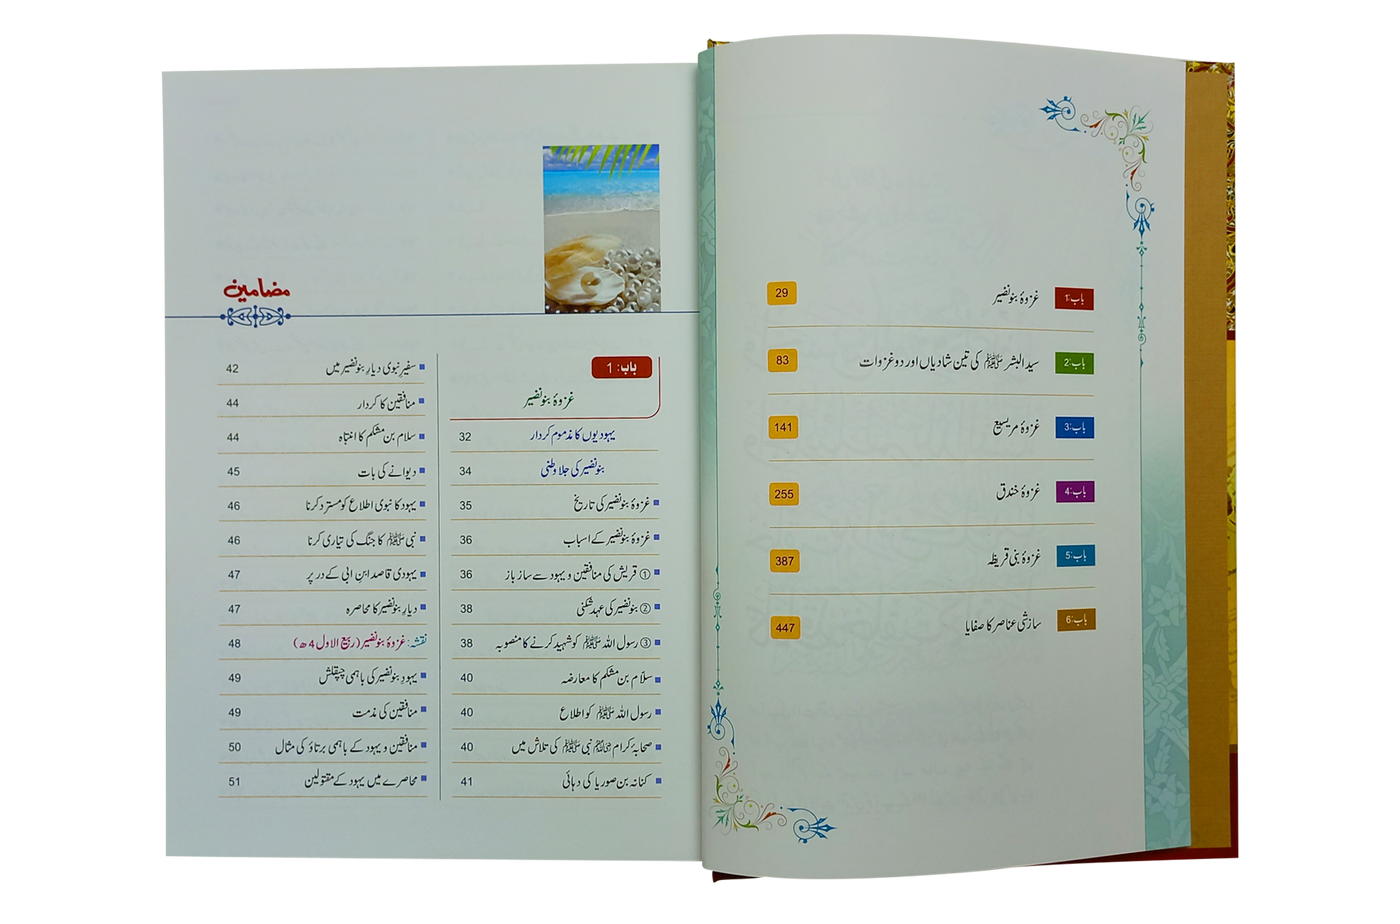 باب:1 غزوۂ بنو نضیر 29
باب:2 سید البشر ﷺ کی تین شادیاں اور دو غزوات 83
باب:3 غزوۂ مریسیع 141
باب:4 غزوۂ خندق 255
باب:5 غزوۂ بنی قریظہ 387
باب:6 سازشی عناصر کا صفایا 447
مضامین
باب: 1
غزوۂ بنو نضیر
یہودیوں کا مذموم کردار 32
بنو نضیر کی جلا وطنی 34
غزوۂ بنو نضیر کی تاریخ 35
غزوۂ بنو نضیر کے اسباب 36
① قریش کی منافقین و یہود سے ساز باز 36
② بنو نضیر کی عہد شکنی 38
③ رسول اللہ ﷺ کو شہید کرنے کا منصوبہ 38
سلّام بن مشکم کا معارضہ 40
رسول اللہ ﷺ کو اطلاع 40
صحابۂ کرام نبی ﷺ کی تلاش میں 40
کنانہ بن صوریا کی دہائی 41
سفیرِ نبوی دیارِ بنو نضیر میں 42
منافقین کا کردار 44
سلام بن مشکم کا انتباہ 44
دیوانے کی بات 45
یہود کا نبوی اطلاع کو مسترد کرنا 46
نبی ﷺ کا جنگ کی تیاری کرنا 46
یہودی قاصد ابنِ ابی کے در پر 47
دیارِ بنو نضیر کا محاصرہ 47
نقشہ: غزوۂ بنو نضیر (ربیع الاول 4ھ) 48
یہودِ بنو نضیر کی باہمی چپقلش 49
منافقین کی مذمت 49
منافقین و یہود کے باہمی برتاؤ کی مثال 50
محاصرے میں یہود کے مقتولین 51